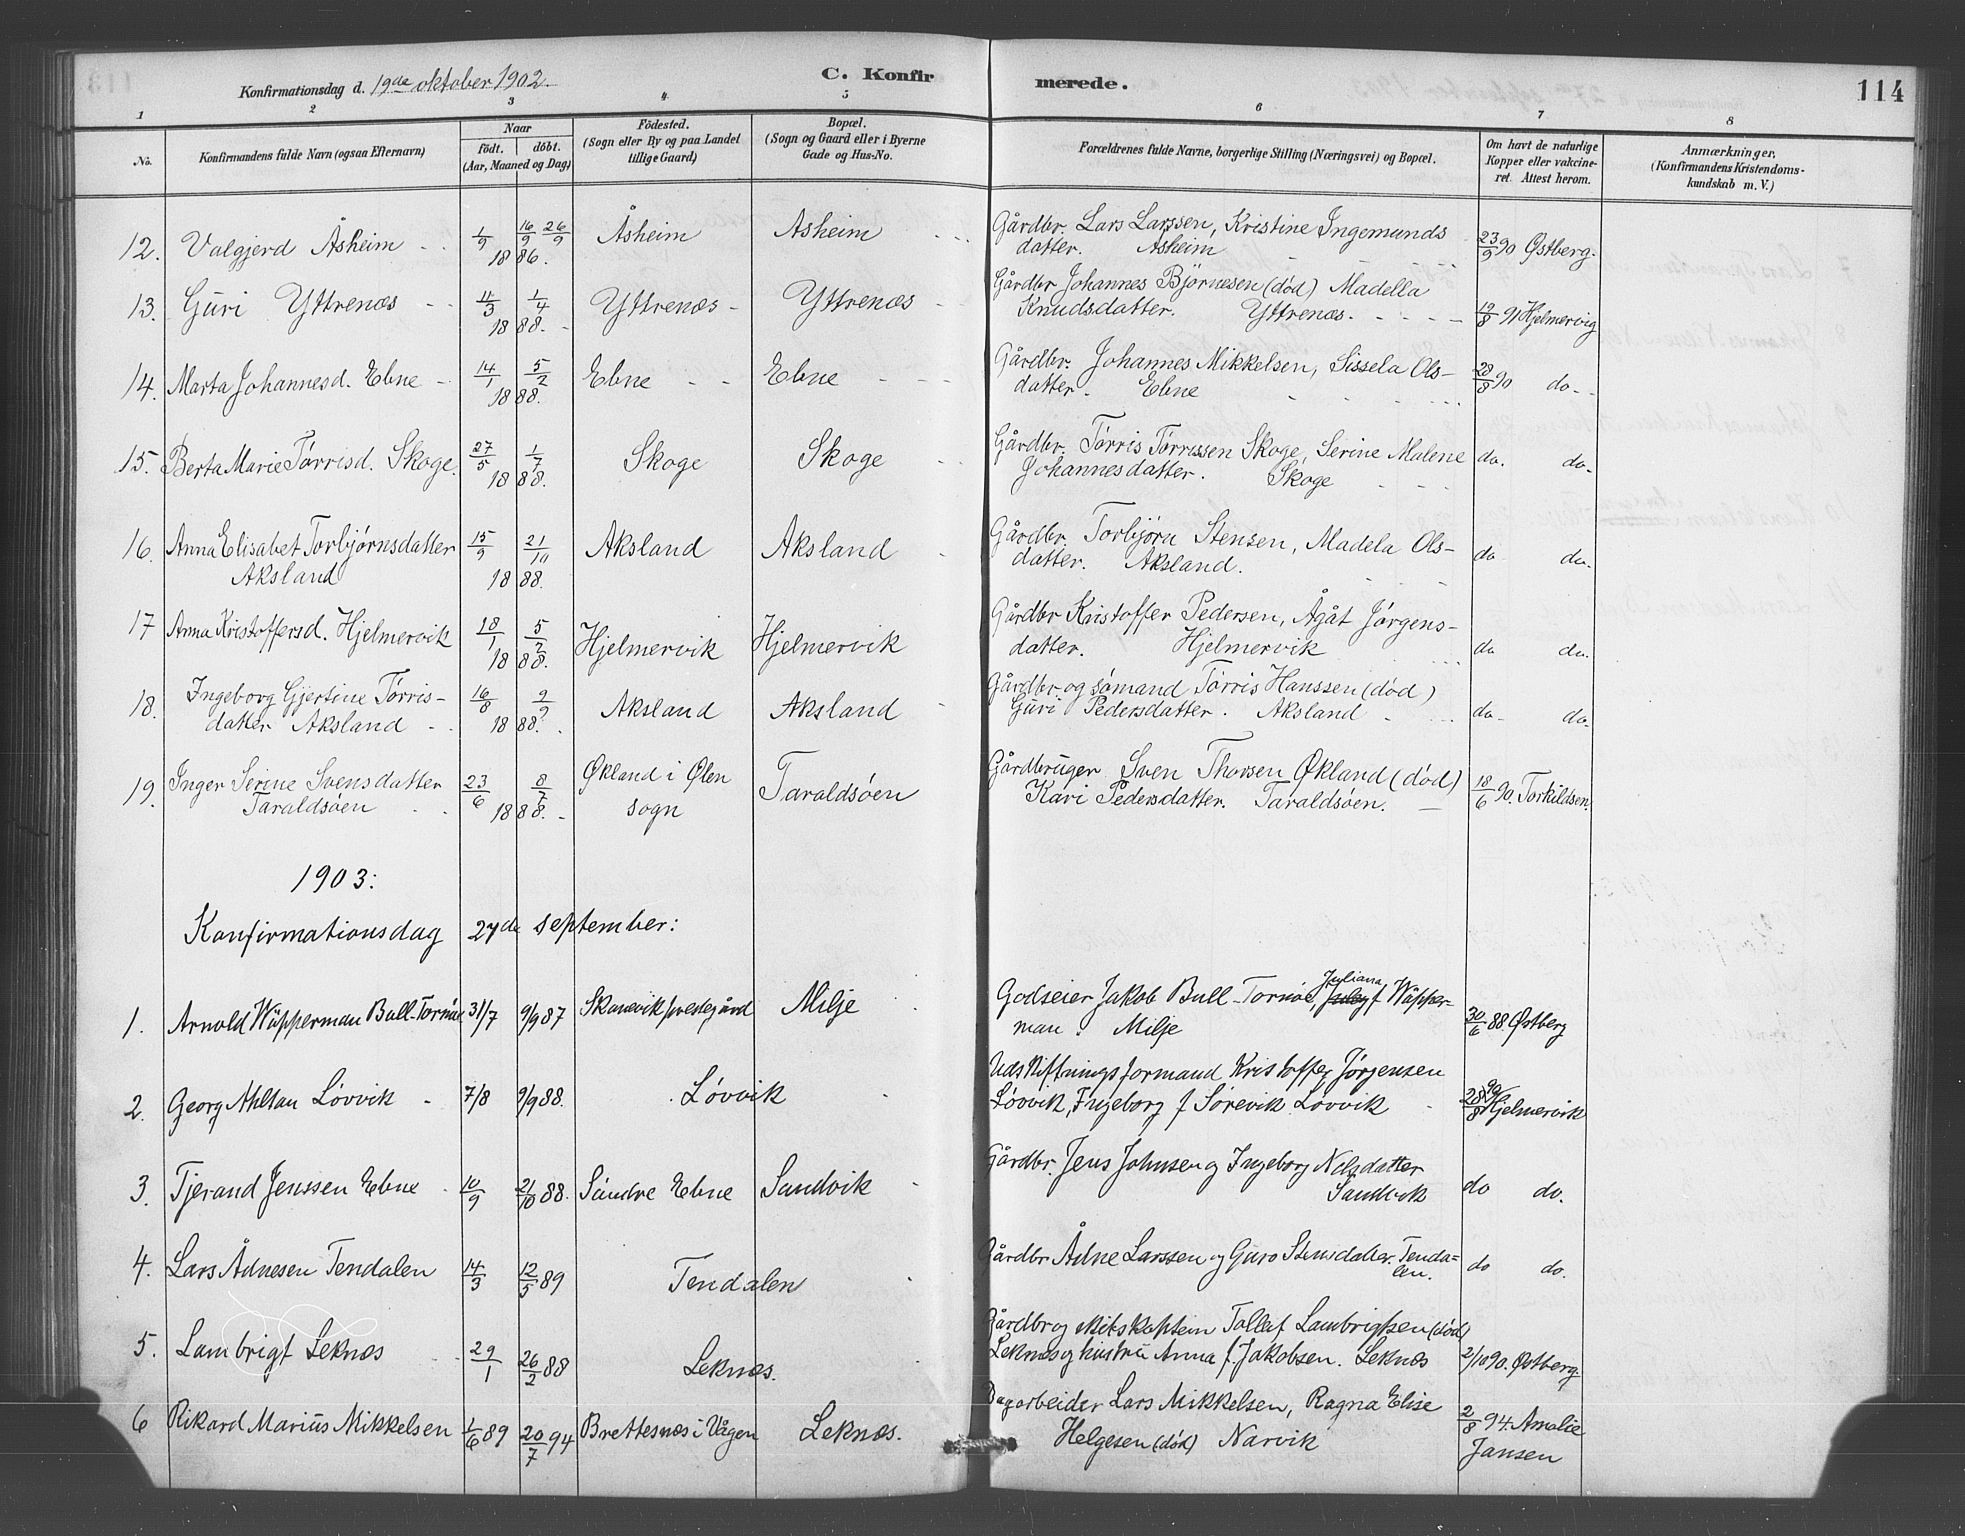 Konfirmationsdag d. 19de oktober 1902. C. Konfirmerede. 114
1 2 3 4 5 6 7 8
No. Konfirmandens fulde Navn (ogsaa Efternavn) Naar født. døbt. (Aar, Maaned og Dag) Födested. (Sogn eller By og paa Landet tillige Gaard) Bopæl. (Sogn og Gaard eller i Byerne Gade og Hus-No. Forældrenes fulde Navne, borgerlige Stilling (Næringsvei) og Bopæl. Om havt de naturlige Kopper eller vakcineret. Attest herom. Anmærkninger, (Konfirmandens Kristendomskundskab m. V.)
12. Valgjerd Åsheim 1/9 16/9 26/9 1886. Åsheim Asheim Gårdbr. Lars Larssen, Kristine Ingemunds
datter. Asheim 23/9 90 Østberg.
13. Guri Yttrenæs 11/3 1/4 1888. Yttrenæs Yttrenæs Gårdbr Johannes Björnesen (död) Madella
Knudsdatter. Yttrenæs. 19/8 91 Hjelmervig
14. Marta Johannesd. Ebne 14/1 5/2 1888. Ebne Ebne Gårdbr. Johannes Mikkelsen, Sissela Ols-
datter. Ebne 28/8 90 do
15. Berta Marie Tørrisd. Skoge. 27/5 1/7 1888. Skoge Skoge Gårdbr. Tørris Tørrissen Skoge, Serine Malene
Johannesdatter. Skoge do. do.
16. Anna Elisabet Torbjørnsdatter
Aksland 15/9 21/10 1888. Aksland Aksland Gårdbr. Torbjørn Stensen, Madela Ols-
datter. Aksland. do do.
17 Anna Kristoffersd. Hjelmervik 18/1 5/2 1888. Hjelmervik Hjelmervik Gårdbr Kristoffer Pedersen, Ågåt Jørgens-
datter. Hjelmervik do do.
18. Ingeborg Gjertine Tørris-
datter Aksland 16/8 9/9 1888. Aksland Aksland Gårdbr. og sømand Tørris Hanssen (död)
Guri Pedersdatter. Aksland do do.
19. Inger Serine Svensdatter
Taraldsøen 23/6 8/7 1888. Økland i Ølen
sogn Taraldsøen Gårdbruger Sven Thorsen Økland (død)
Kari Pedersdatter. Taraldsøen. 18/6 90. Torkildsen.
1903:
Konfirmationsdag 27de september:
1. Arnold Wüpperman Bull-Tornøe 31/7 9/9 87 Skånevik prestegård Milje Godseier Jakob Bull-Tornøe, Juliana f Wüpper-
man. Milje 30/6 88. Østberg
2. Georg Løvvik 7/8 9/9 88. Løvvik Udskiftningsformand Kristoffer Jørgensen
Løvvik, Ingeborg f Sørevik Løvvik 28/8 90 Hjelmervik
3. Tjerand Jenssen Ebne 10/9 21/10 88. Søndre Ebne Sandvik Gårdbr. Jens Johnsen og Ingeborg Nelsdatter
Sandvik do do.
4. Lars Ådnesen Tendalen 14/3 12/5 89 Tendalen Gårdbr Ådne Larssen og Guro Stensdatter. Tenda-
len. do do.
5. Lambrigt Leknæs 29/1 26/2 88 Leknæs. Gårdbr og skibskaptein Tollef Lambrigtsen (død)
Leknæs og hustru Anna f. Jakobsen. Leknæs 2/10 90. Østberg.
6 Rikard Marius Mikkelsen 1/6 89 20/7 94 Brettesnæs i Vågen Leknæs. Dagarbeider Lars Mikkelsen, Ragna Elise
Helgesen (død) Narvik 2/8 94. Amalie
Jansen